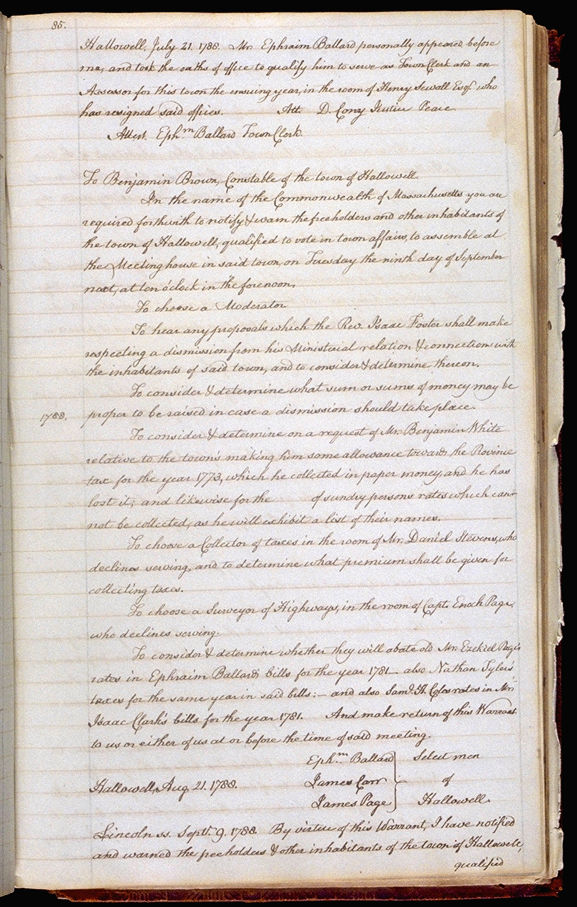 35.
Hallowell, July 21. 1788. Mr. Ephraim Ballard personally appeared before
me, and took the oaths of office to qualify him to serve as Town Clerk and an
Assessor for this town the ensuing year, in the room of Henry Sewall Esqr. who
has resigned said offices. Att. D. Cony Justice Peace
Attest. Ephm Ballard Town Clerk.
To Benjamin Brown, Constable of the town of Hallowell
In the name of the Commonwealth of Massachusetts you are
required forthwith to notify & warn the freeholders and other inhabitants of
the town of Hallowell, qualified to vote in town affairs, to assemble at
the Meeting house in said town, on Tuesday the ninth day of September
next, at ten o'clock in the forenoon,
To choose a Moderator
To hear any proposals which the Rev. Isaac Foster shall make
respecting a dismission from his Ministerial relation & connection with
the inhabitants of said town, and to consider & determine thereon.
To consider & determine what sum or sums of money may be
1788. proper to be raised in case a dismission should take place.
To consider & determine on a request of Mr. Benjamin White
relative to the town's making him some allowance towards the Province
tax for the year 1773, which he collected in paper money, and he has
lost it; and likewise for the of sundry persons rates which can-
not be collected, as he will exhibit a list of their names.
To choose a Collector of taxes in the room of Mr. Daniel Stevens, who
declines serving, and to determine what premium shall be given for
collecting taxes.
To choose a Surveyor of Highways, in the room of Capt. Enoch Page,
who declines serving
To consider & determine whether they will abate old Mr. Ezekiel Page's
rates in Ephraim Ballard's bills for the year 1781 also Nathan Tyler's
taxes for the same year in said bills:— and also Saml. H. rates in Mr.
Isaac Clark's bills for the year 1781. And make return of this Warrant
to us or either of us at or before the time of said meeting.
Ephm Ballard Select men
Hallowell, Aug. 21. 1788. James Carr of
James Page Hallowell.
Lincoln ss. Septr. 9. 1788. By virtue of this Warrant, I have notified
and warned the freeholders & other inhabitants of the town of Hallowell,
qualified